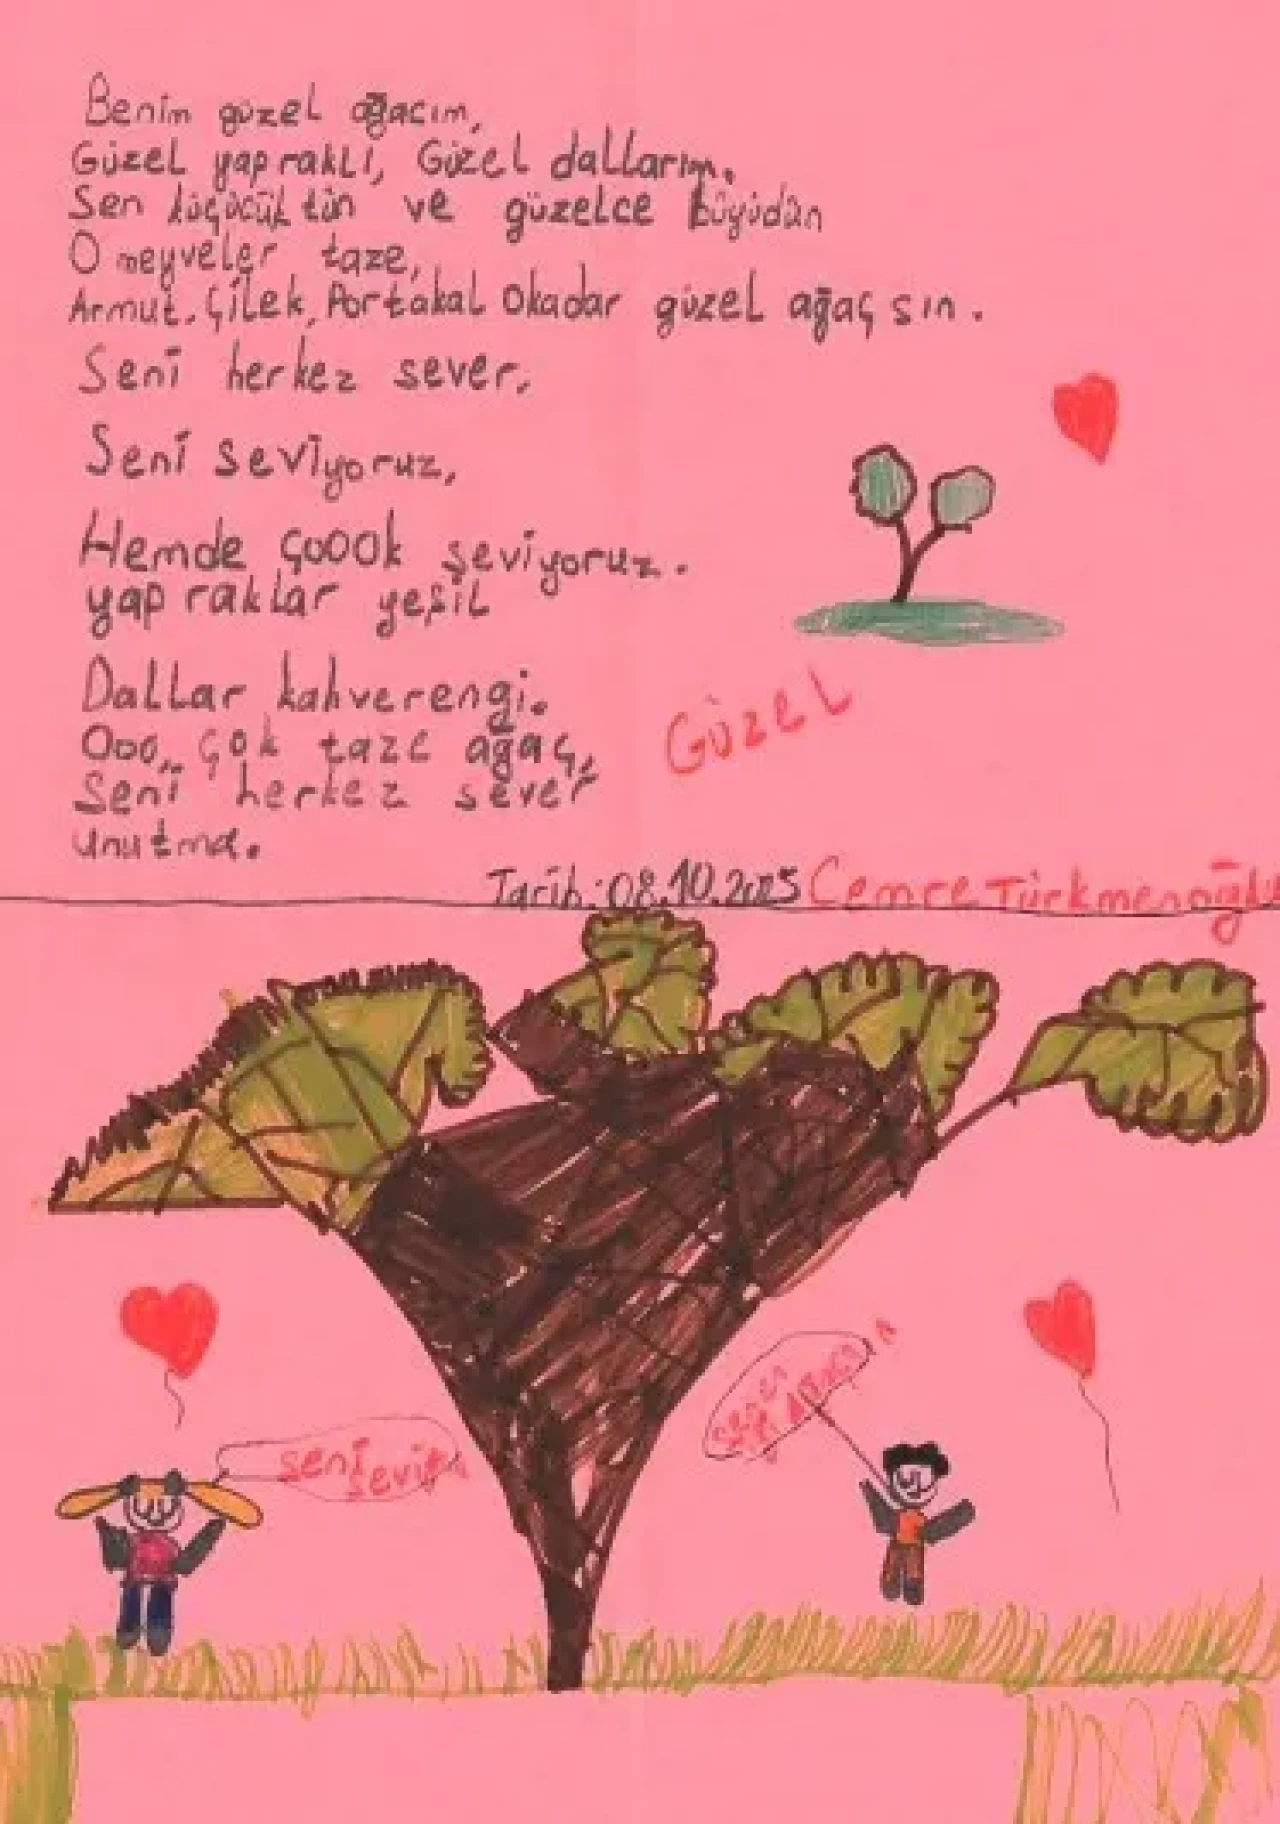 Benim güzel ağacım,
Güzel yapraklı, Güzel dallarım.
Sen küçücüktün ve güzelce büyüdün
O meyveler taze,
Armut, Çilek, Portakal Okadar güzel ağaçsın.
Seni herkez sever.
Seni seviyoruz,
Hemde çoook seviyoruz.
yapraklar yeşil
Dallar kahverengi.
Ooo, çok taze ağaç,
Seni herkez sever
unutma.
Güzel
Tarih: 08.10.2025 Cemre Türkmenoğlu
seni